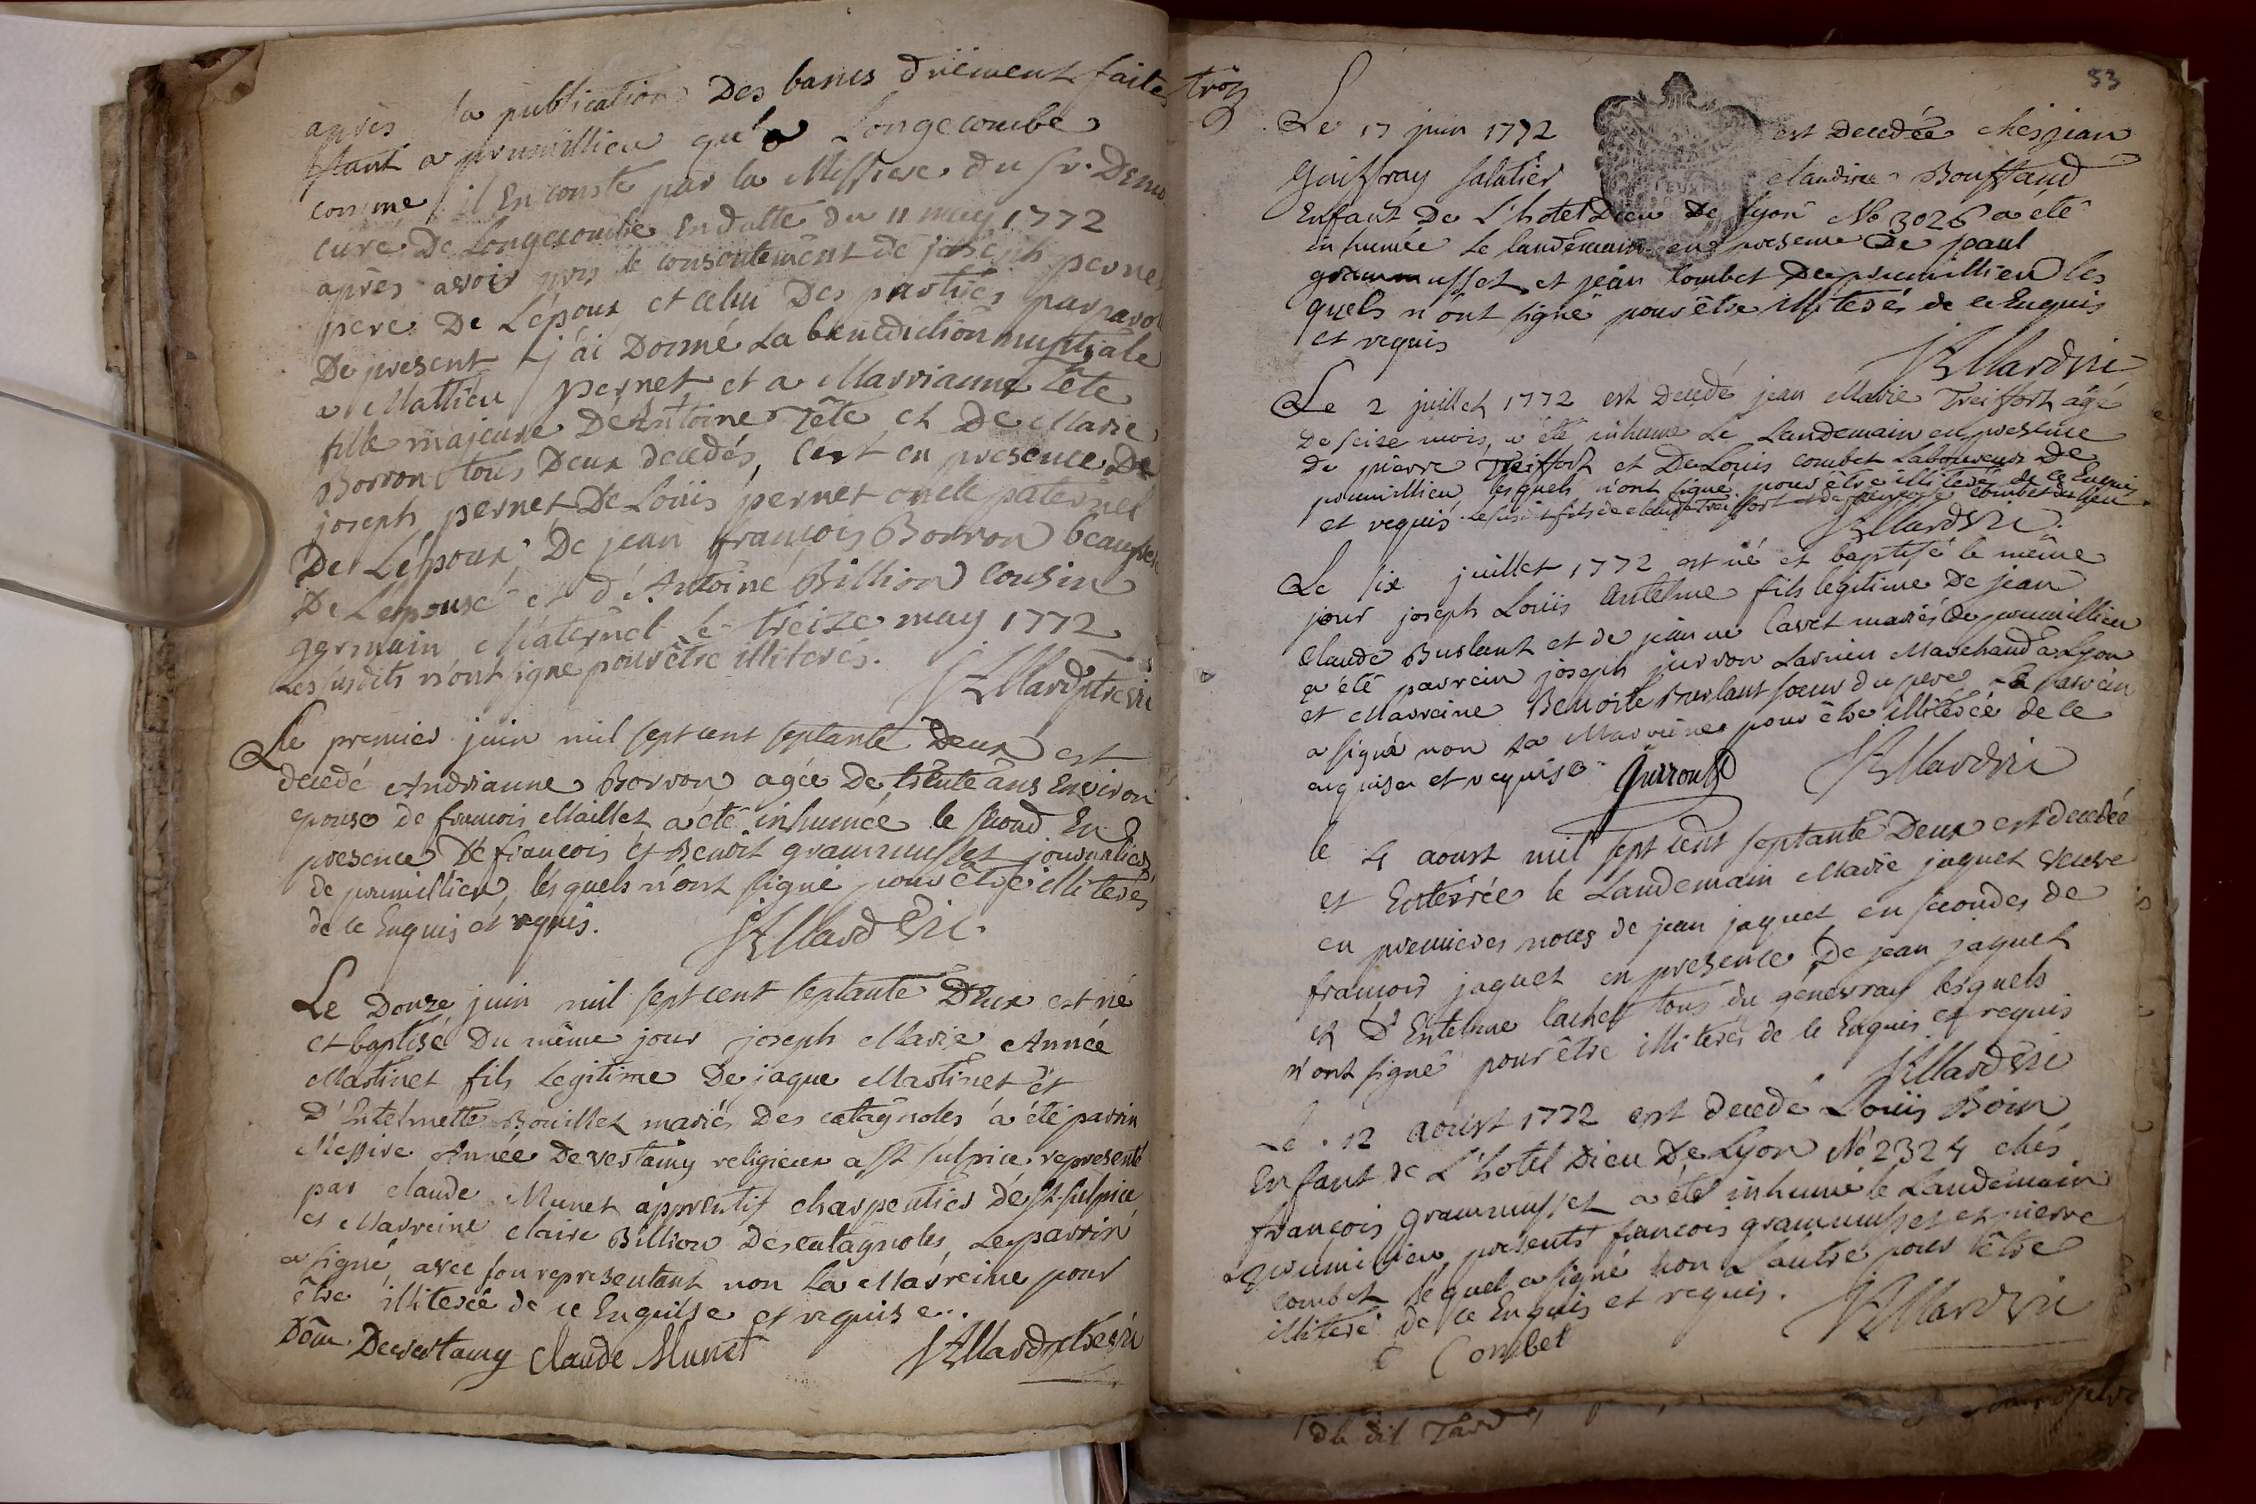 après la publication Des bancs duëment faite
tant a prumillieu qu'a Longecombe
comme il En conste par la Missive du Sr.
curé De Longecombe En datte du 11 may 1772
après avoir pris le consentement de joseph pernet
pere De L'époux et celui Des parties par parol
De present j'ai Donné La bénédiction nuptiale
a Mathieu pernet et a Marrianne Tête
fille majeure De Antoine Tête et De Marie
Borron tous Deux decedés, C'est en presence De
joseph pernet De Loüis pernet oncle paternel
De L'époux De jean françois Borron beaufrere
De L'epouse et d'Antoine Billion Cousin
germain Maternel le treize may 1772
Les susdits n'ont signé pour être illiterés.
Le premier juin mil sept cent septante Deux est
decedé Andrianne Borron agée De trente ans Environ
epouse de francois Maillet a été inhumée le second En
presence De francois et Benoit grammusset journaliers
de prumillieu, lesquels n'ont signé pour être illiterés
de ce Enquis et requis.
Le Douze juin mil sept cent septante Deux est né
et baptisé Du même jour joseph Marie Année
Martinet fils Legitime De jaque Martinet et
D'Entelmette Bouillet mariés Des catagnoles a été parrin
Messire Année Devertamy religieux a St Sulpice representé
par claude Munet apprentif charpentier De St Sulpice
et Marreine claire Billion Des catagnoles, Le parrin
a signé avec son representant non La Marreine pour
être illiterée de ce Enquise et requise..
Dom Devertamy Claude Munet
53
Le 17 juin 1772 est decedée chés jean
Guiffray Salatier claudine Bouffaud
Enfant De L'hotel Dieu De Lyon No 3026 a été
inhumée Le landemain en presence De paul
grammusset et jean Combet De prumillieu les
quels n'ont signé pour être illiterés de ce Enquis
et requis
Le 2 juillet 1772 est decedé jean Marie Treiffort agé
De seize mois, a été inhumé Le Landemain en presence
de pierre Treiffort et De Louis combet Laboureurs De
prumillieu, lesquels n'ont signé pour être illiterés de ce Enquis
et requis. Le susdit fils de claude Treiffort et de combet
Le six juillet 1772 est né et baptisé le même
jour joseph Loüis Antelme fils legitime De jean
claude Burlant et de jeanne Cavet mariés de prumillieu
a été parrein joseph jurron Marchand a Lyon
et Marreine Benoite Burlant soeur du pere Le parrein
a signé non La Marreine pour être illiterée de ce
enquise et requise
le 4 aoust mil sept cent septante Deux est decedée
et Enterrée le Landemain Marie jaquet veuve
en premieres noces de jean jaquet en secondes de
francois jaquet en presence De jean jaquet
et D'Entelme Cachet tous du genevray lesquels
n'ont signé pour être illiterés de ce Enquis et requis
Le 12 aoust 1772 est decedé Loüis Boin
Enfant de L'hotel Dieu De Lyon No 2324 chés
françois grammusset a été inhumé le Landemain
a prumillieu, presents francois grammusset et pierre
combet lequel a signé non L'autre pour être
illiteré de ce Enquis et requis.
Combet